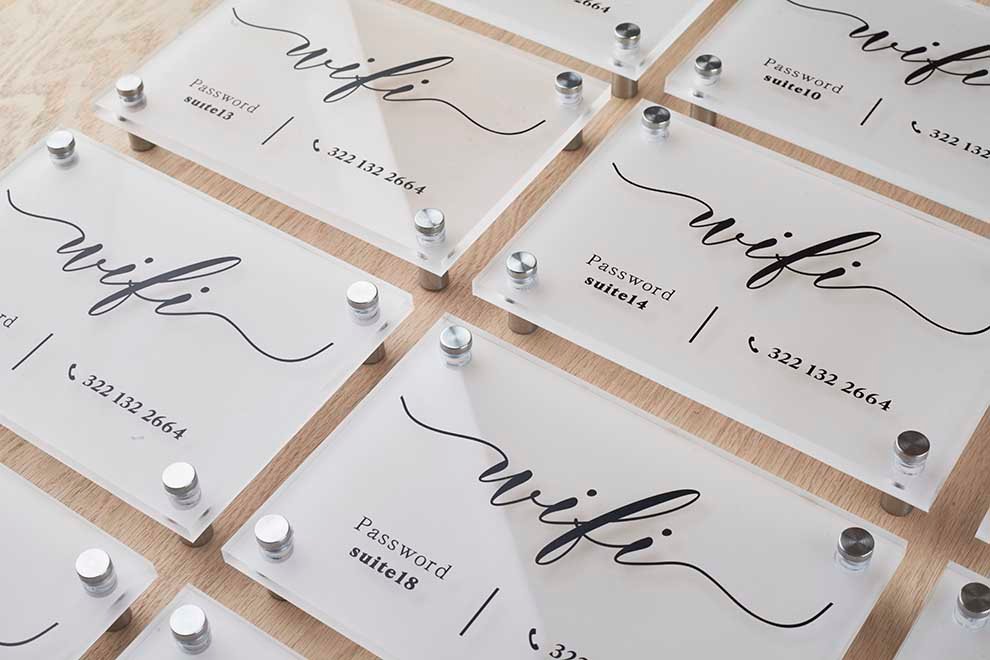 2664
wifi
Password
suite13
322 132 2664
wifi
Password
suite10
322 132
wifi
322 132 2664
wifi
Password
suite14
322 132 2664
wifi
Password
suite18
322